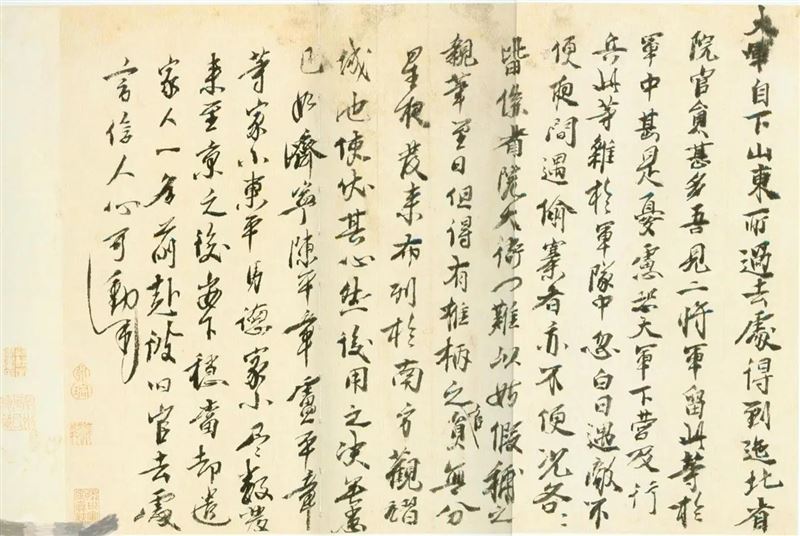 大軍自下山東所過去處得到迤北省
院官員甚多吾見二將軍留此等於
軍中甚是憂慮恐大軍下營及行
兵此等雜於軍隊中忽白日遇敵不
便夜間遇偷寨者亦不便況各〻
皆係省院大衙門難以姑假補之
親筆至日但得有椎柄之官員無分
星夜發來布列於南方觀翫
城池使伏其心然後用之決無患
已如濟寧陳平章盧平章
等家小東平馬德家小尽數發
來至京之後安下穩當却遣
家人一名前赴彼旧官去處
言信人心可動